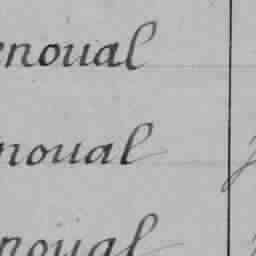 enoual
noual
noual